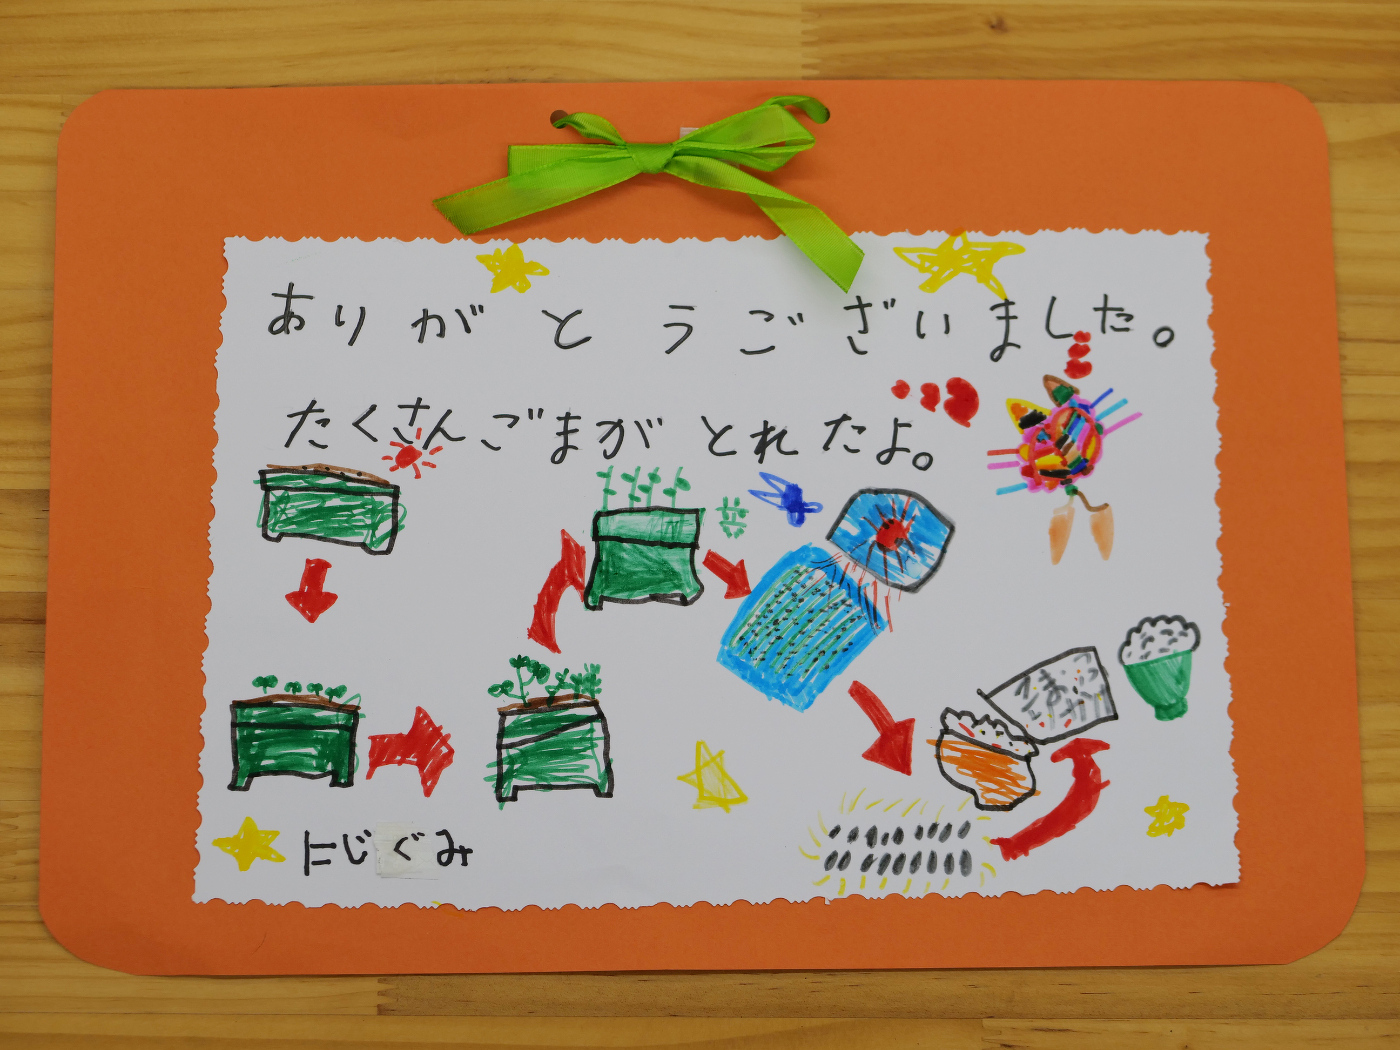 ありがとうございました。
たくさんごまがとれたよ。
にじぐみ